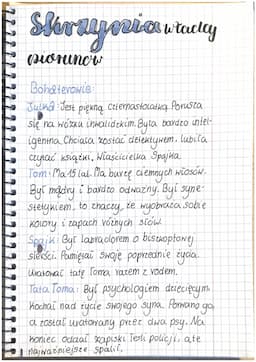 Skrzynia władcy
piorunów
Bohaterowie:
Julka: Jest piękną ciemnoskórą. Porusza
się na wózku inwalidzkim. Była bardzo intel-
igentna. Chciała zostać detektywem, lubiła
czytać książki. Właścicielka Spajka.
Tom: Ma 15 lat. Ma burzę ciemnych włosów.
Był mądry i bardzo odważny. Był syne-
stetykiem, to znaczy, że wyobraża sobie
kolory i zapach różnych słów.
Spajk: Był labradorem o biszkoptowej
sierści. Pamiętał swoje poprzednie życia.
Uratował tatę Toma razem z wodem.
Tata Toma: Był psychologiem dziecięcym.
Kochał nad życie swojego syna. Pomaga go,
a został uratowany przez dwa psy. Na
koniec oddał zapiski Tesli policji, ale
najważniejsze spalił.